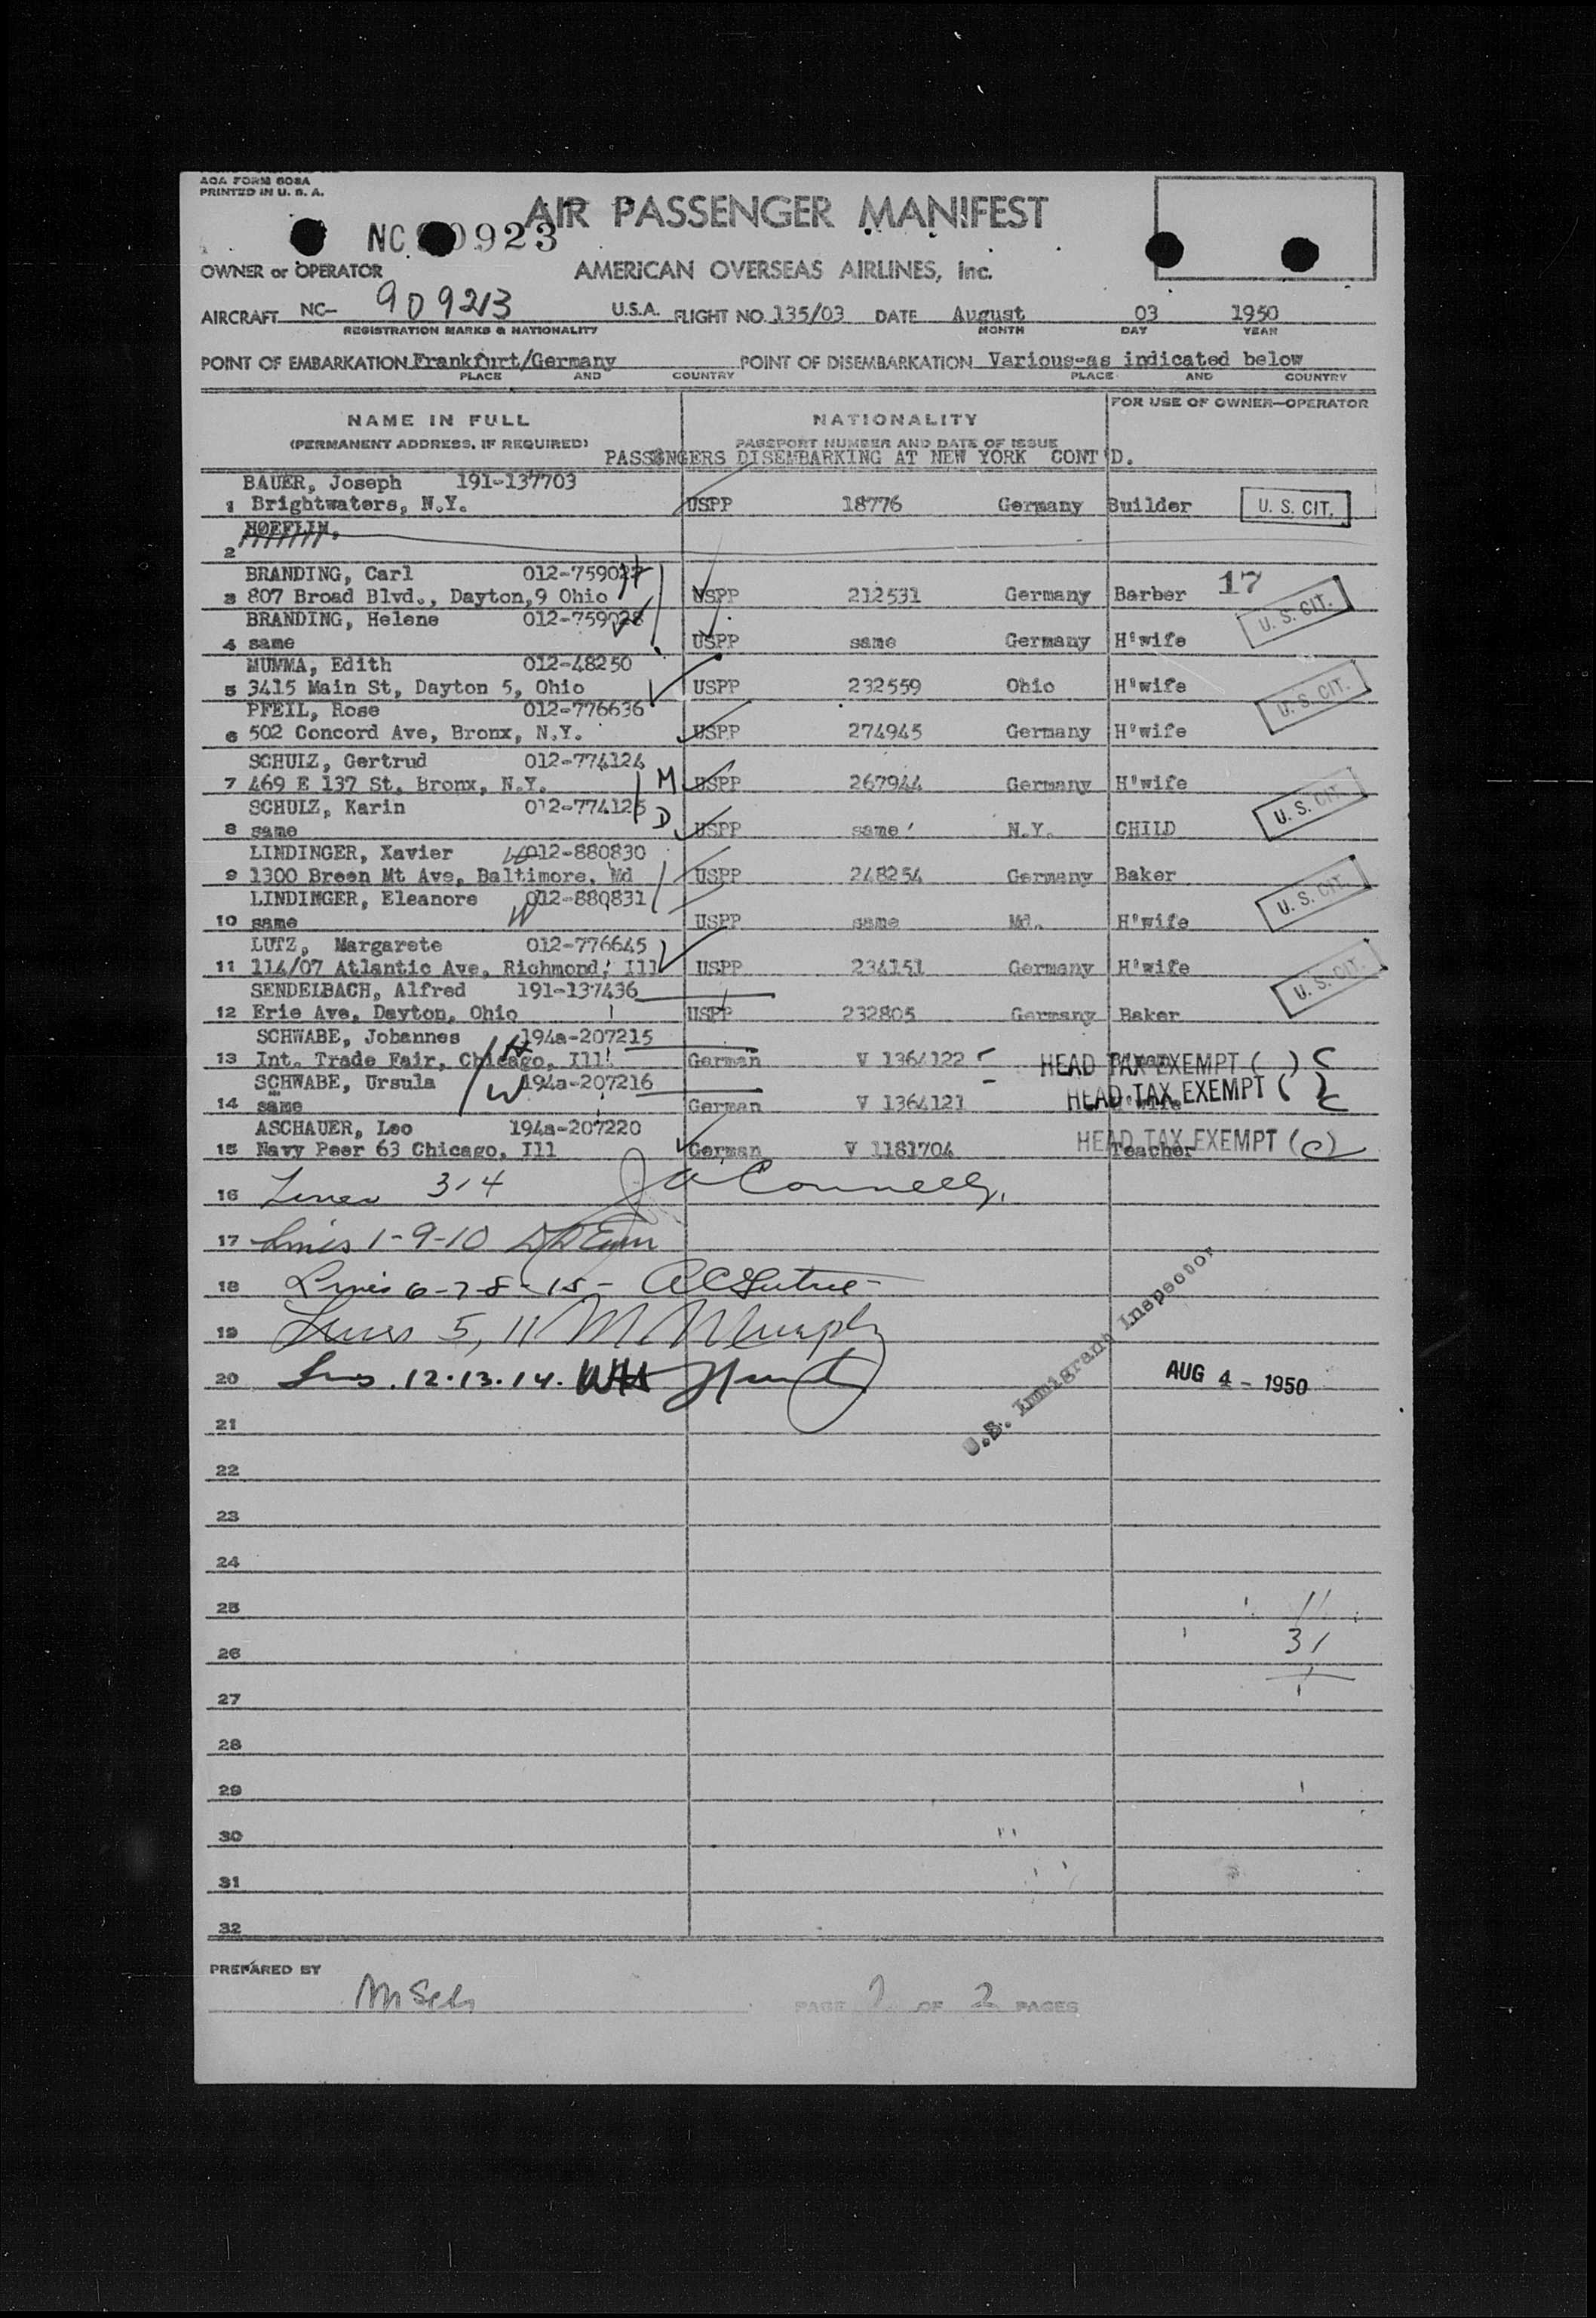 AOA FORM 608A
PRINTED IN U. S. A.
AIR PASSENGER MANIFEST
NC 90923
OWNER or OPERATOR AMERICAN OVERSEAS AIRLINES, Inc.
AIRCRAFT NC- 90923 U.S.A. FLIGHT NO. 135/03 DATE August 03 1950
REGISTRATION MARKS & NATIONALITY MONTH DAY YEAR
POINT OF EMBARKATION Frankfurt/Germany POINT OF DISEMBARKATION Various-as indicated below
PLACE AND COUNTRY PLACE AND COUNTRY
NAME IN FULL NATIONALITY FOR USE OF OWNER-OPERATOR
(PERMANENT ADDRESS, IF REQUIRED) PASSPORT NUMBER AND DATE OF ISSUE
PASSENGERS DISEMBARKING AT NEW YORK CONT'D.
BAUER, Joseph 191-137703
1 Brightwaters, N.Y. USPP 18776 Germany Builder U. S. CIT.
HOEFLIN,
2
BRANDING, Carl 012-759027 H
3 807 Broad Blvd., Dayton,9 Ohio USPP 212531 Germany Barber 17 U. S. CIT.
BRANDING, Helene 012-759028
4 same USPP same Germany H'wife
MUMMA, Edith 012-48250
5 3415 Main St, Dayton 5, Ohio USPP 232559 Ohio H'wife U. S. CIT.
PFEIL, Rose 012-776636
6 502 Concord Ave, Bronx, N.Y. USPP 274945 Germany H'wife
SCHULZ, Gertrud 012-774124
7 469 E 137 St, Bronx, N.Y. M USPP 267944 Germany H'wife
SCHULZ, Karin 012-774125
8 same D USPP same N.Y. CHILD U. S. CIT.
LINDINGER, Xavier 012-880830
9 1300 Breen Mt Ave, Baltimore, Md USPP 248254 Germany Baker
LINDINGER, Eleanore 012-880831
10 same W USPP same Md. H'wife U. S. CIT.
LUTZ, Margarete 012-776645
11 114/07 Atlantic Ave, Richmond, Ill USPP 234151 Germany H'wife
SENDELBACH, Alfred 191-137436
12 Erie Ave, Dayton, Ohio USPP 232805 Germany Baker U. S. CIT.
SCHWABE, Johannes 194a-207215
13 Int. Trade Fair, Chicago, Ill H German V 1364122 HEAD TAX EXEMPT ( ) C
SCHWABE, Ursula 194a-207216
14 same W German V 1364121 H'wife HEAD TAX EXEMPT ( ) C
ASCHAUER, Leo 194a-207220
15 Navy Peer 63 Chicago, Ill German V 1181704 Teacher HEAD TAX EXEMPT (C)
16 Lines 3-4 J A Connelly,
17 Lines 1-9-10
18 Lines 6-7-8-15-
19 Lines 5, 11 M Murphy
20 Lns. 12.13.14.
U.S. Immigrant Inspector
AUG 4 - 1950
21
22
23
24
25 11
26 31
27
28
29
30
31
32
PREPARED BY
PAGE 2 OF 2 PAGES